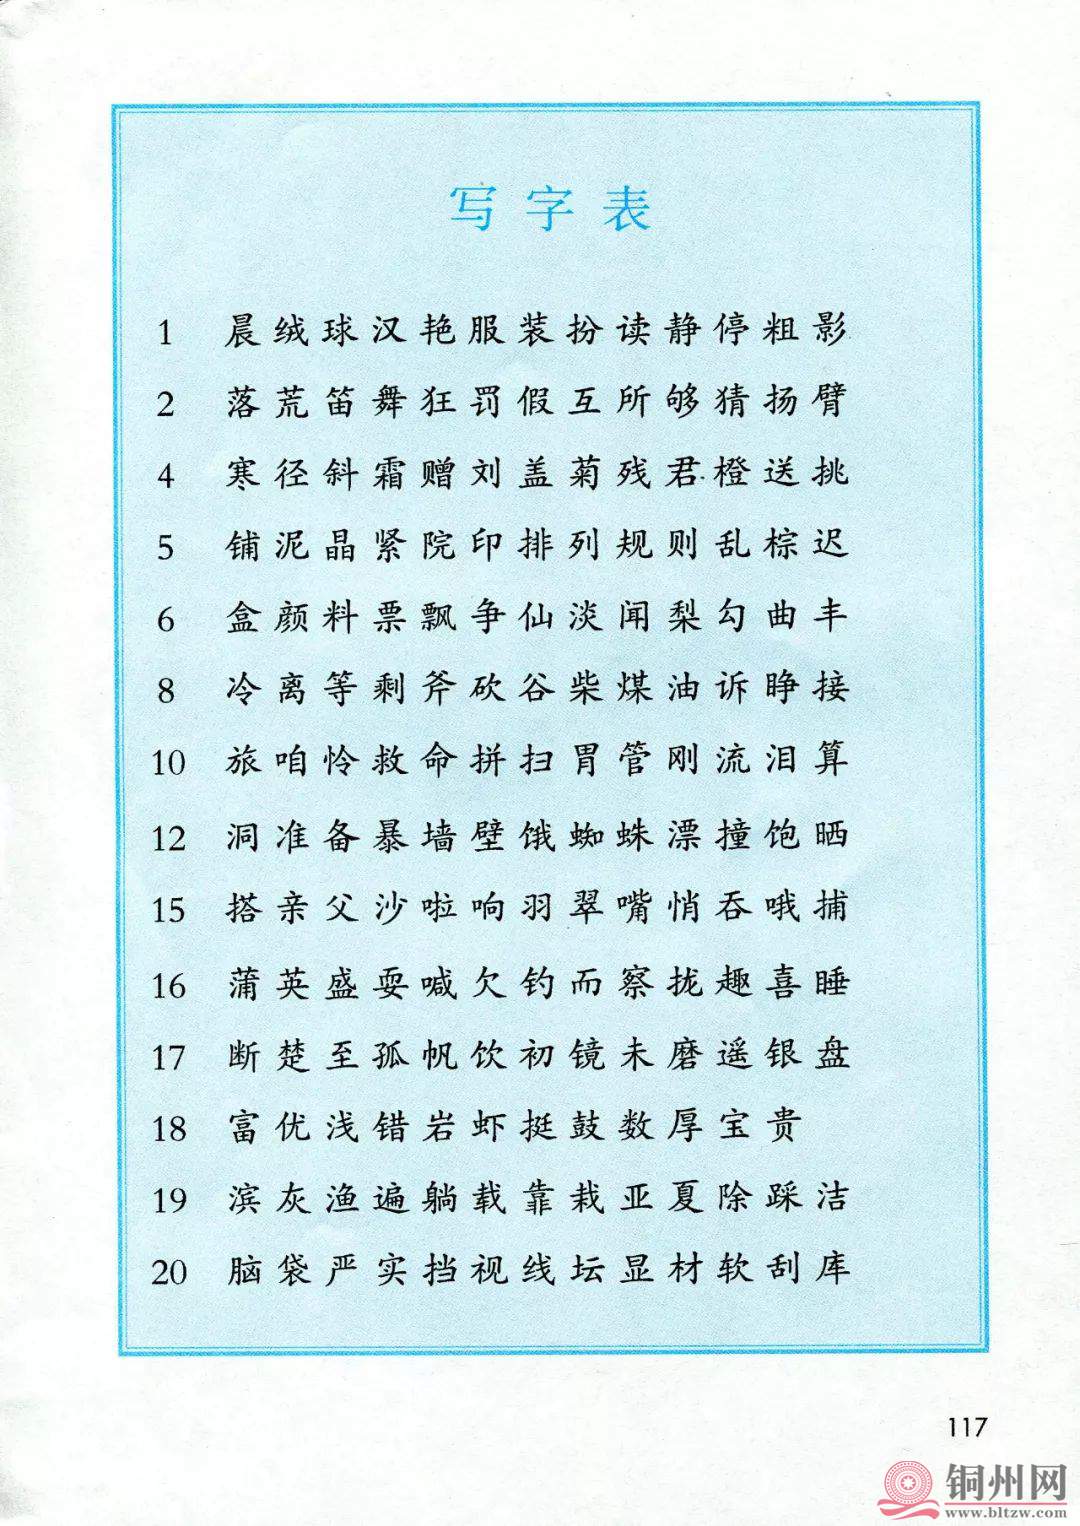 写字表
1 晨绒球汉艳服装扮读静停粗影
2 落荒笛舞狂罚假互所够猜扬臂
4 寒径斜霜赠刘盖菊残君橙送挑
5 铺泥晶紧院印排列规则乱棕迟
6 盒颜料票飘争仙淡闻梨勾曲丰
8 冷离等剩斧砍谷柴煤油诉睁接
10 旅咱怜救命拼扫胃管刚流泪算
12 洞准备暴墙壁饿蜘蛛漂撞饱晒
15 搭亲父沙啦响羽翠嘴悄吞哦捕
16 蒲英盛耍喊欠钓而察拢趣喜睡
17 断楚至孤帆饮初镜未磨遥银盘
18 富优浅错岩虾挺鼓数厚宝贵
19 滨灰渔遍躺载靠栽亚夏除踩洁
20 脑袋严实挡视线坛显材软刮库
117
铜州网
www.bltzw.com